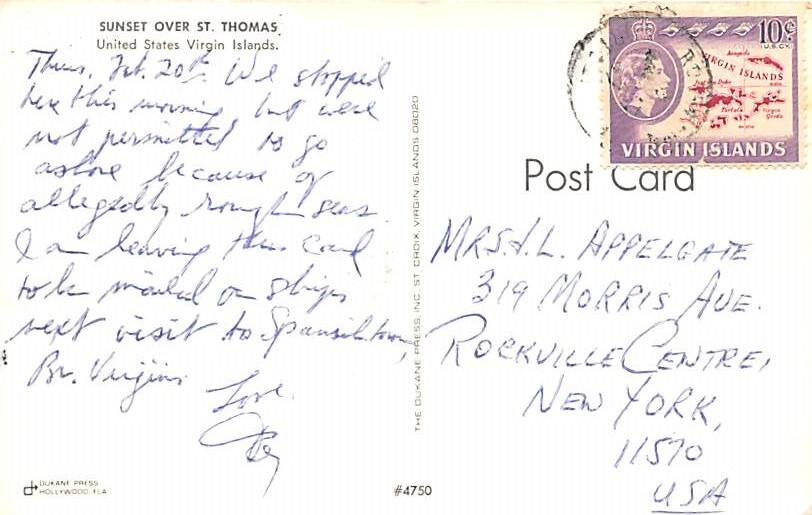 SUNSET OVER ST. THOMAS
United States Virgin Islands.
Thurs, Feb. 20th We stopped
here this morning but were
not permitted to go
ashore because of
allegedly rough seas.
I am leaving this card
to be mailed on ships
next visit to Spanish town,
Br. Virgins
Love
DUKANE PRESS
HOLLYWOOD, FLA.
#4750
THE DUKANE PRESS, INC. ST. CROIX, VIRGIN ISLANDS 08020
10¢
U.S.CY.
Anegada
VIRGIN ISLANDS
Tortola
Virgin
Gorda
VIRGIN ISLANDS
Post Card
MRS. A.L. APPELGATE
319 MORRIS AVE.
ROCKVILLE CENTRE,
NEW YORK,
11570
USA